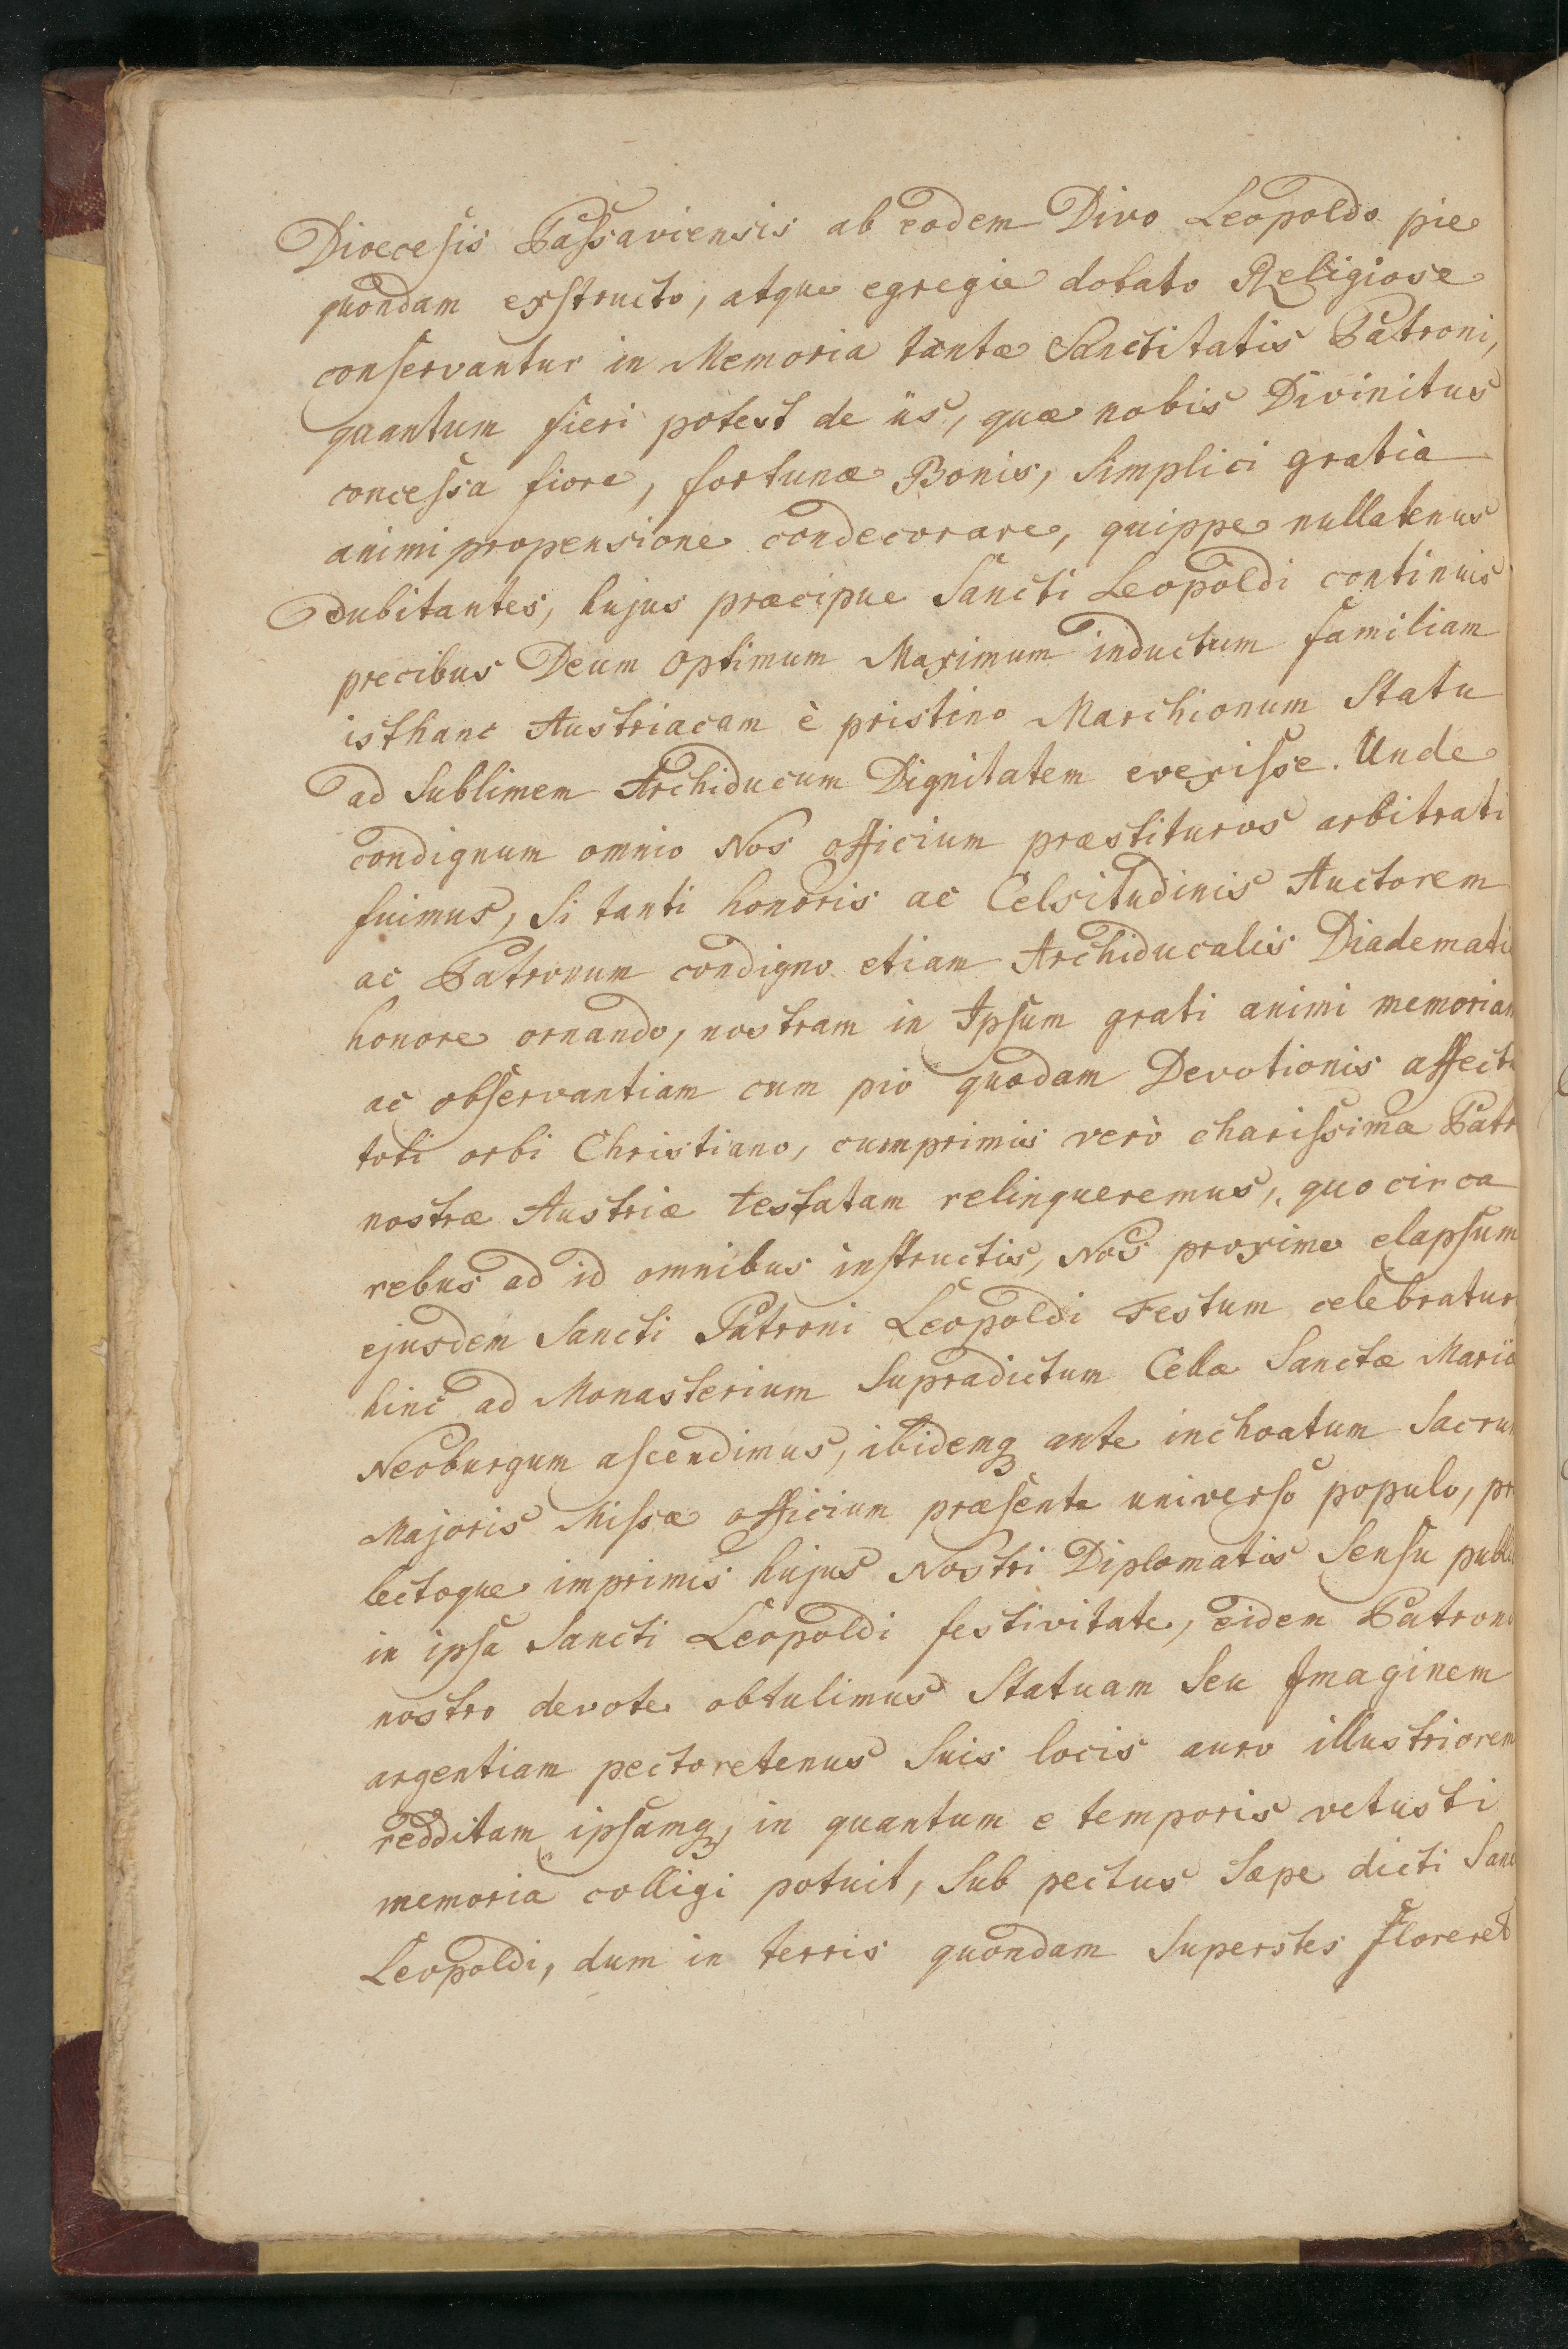 Dioecesis Passaviensis ab eodem Divo Leopoldo pie
quondam exstructo, atque egregie dotato Religiose
conservantur in Memoria tantæ Sanctitatis Patroni,
quantum fieri potest de iis, quæ nobis Divinitus
concessa fiore, fortunæ Bonis, Simplici gratia
animi propensione condecorare, quippe nullatenus
dubitantes, hujus præcipue Sancti Leopoldi continuis
precibus Deum Optimum Maximum inductum familiam
isthanc Austriacam è pristino Marchionum Statu
ad Sublimem Archiducum Dignitatem evexisse. Unde
condignum omnio Nos officium præstituros arbitrati
fuimus, Si tanti honoris ac Celsitudinis Auctorem
ac Patronum condigno etiam Archiducalis Diademati
honore ornando, nostram in Ipsum grati animi memoriam
ac observantiam cum pio quodam Devotionis affectu
toti orbi Christiano, cumprimis verò charissima Patr
nostræ Austriæ testatam relinqueremus, quo circa
rebus ad id omnibus instructis, Nos proxime elapsum
ejusdem Sancti Patroni Leopoldi Festum celebratur
hinc ad Monasterium Supradictum Cella Sanctæ Mariæ
Neoburgum ascendimus, ibidemq ante inchoatum Sacrum
Majoris Missæ officium præsente universo populo, pr
lectoque imprimis hujus Nostri Diplomatis Sensu publi
in ipsa Sancti Leopoldi festivitate, eidem Patrono
nostro devote obtulimus Statuam Seu Imaginem
argentiam pectoretenus Suis locis auro illustriorem
redditam ipsamq, in quantum e temporis vetusti
memoria colligi potuit, Sub pectus Sæpe dicti Sanc
Leopoldi, dum in terris quondam Superstes floreret